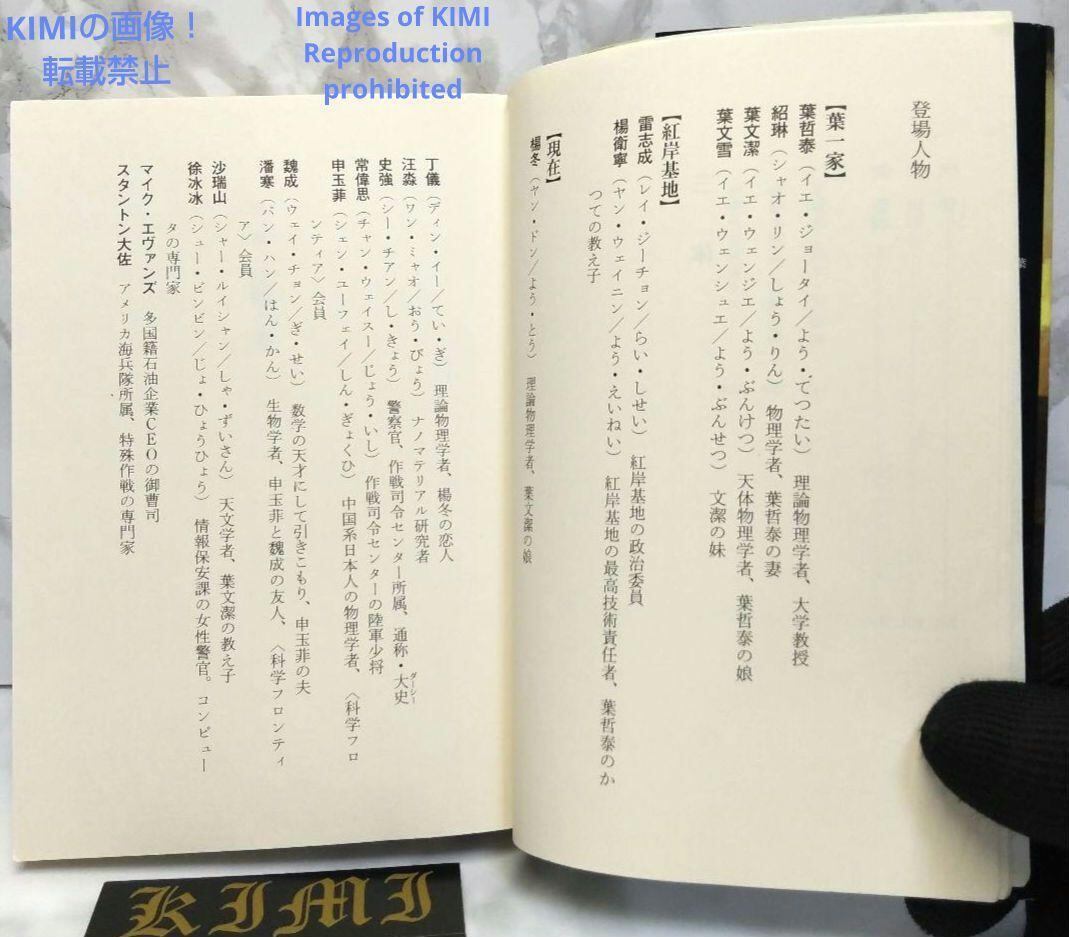 KIMIの画像！
転載禁止
Images of KIMI
Reproduction
prohibited
登場人物
【葉一家】
葉哲泰（イエ・ジョータイ／よう・てつたい）　理論物理学者、大学教授
紹琳（シャオ・リン／しょう・りん）　物理学者、葉哲泰の妻
葉文潔（イエ・ウェンジエ／よう・ぶんけつ）　天体物理学者、葉哲泰の娘
葉文雪（イエ・ウェンシュエ／よう・ぶんせつ）　文潔の妹
【紅岸基地】
雷志成（レイ・ジーチョン／らい・しせい）　紅岸基地の政治委員
楊衛寧（ヤン・ウェイニン／よう・えいねい）　紅岸基地の最高技術責任者、葉哲泰のか
つての教え子
【現在】
楊冬（ヤン・ドン／よう・とう）　理論物理学者、葉文潔の娘
丁儀（ディン・イー／てい・ぎ）　理論物理学者、楊冬の恋人
汪淼（ワン・ミャオ／おう・びょう）　ナノマテリアル研究者
史強（シー・チアン／し・きょう）　警察官、作戦司令センター所属、通称・大史
ダーシー
常偉思（チャン・ウェイスー／じょう・いし）　作戦司令センターの陸軍少将
申玉菲（シェン・ユーフェイ／しん・ぎょくひ）　中国系日本人の物理学者、〈科学フロ
ンティア〉会員
魏成（ウェイ・チョン／ぎ・せい）　数学の天才にして引きこもり、申玉菲の夫
潘寒（パン・ハン／はん・かん）　生物学者、申玉菲と魏成の友人、〈科学フロンティ
ア〉会員
沙瑞山（シャー・ルイシャン／しゃ・ずいさん）　天文学者、葉文潔の教え子
徐冰冰（シュー・ビンビン／じょ・ひょうひょう）　情報保安課の女性警官。コンピュー
タの専門家
マイク・エヴァンズ　多国籍石油企業CEOの御曹司
スタントン大佐　アメリカ海兵隊所属、特殊作戦の専門家
KIMI